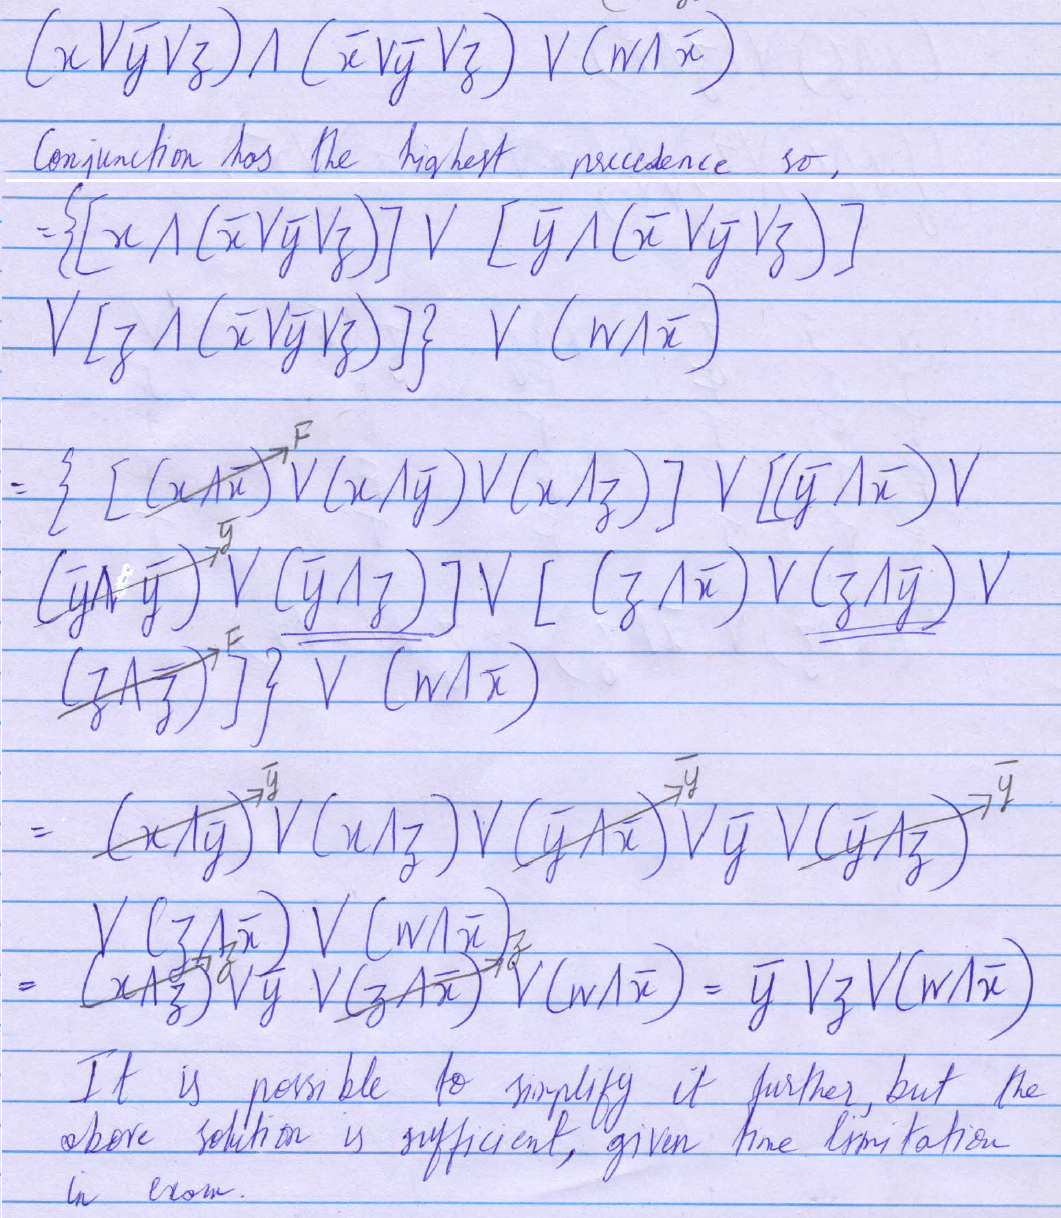 (x ∨ ȳ ∨ z) ∧ (x̄ ∨ ȳ ∨ z) ∨ (w ∧ x̄)
Conjunction has the highest precedence so,
= {[x ∧ (x̄ ∨ ȳ ∨ z)] ∨ [ȳ ∧ (x̄ ∨ ȳ ∨ z)]
∨ [z ∧ (x̄ ∨ ȳ ∨ z)]} ∨ (w ∧ x̄)
F
= { [ (x ∧ x̄) ∨ (x ∧ ȳ) ∨ (x ∧ z) ] ∨ [(ȳ ∧ x̄) ∨
ȳ
(ȳ ∧ ȳ) ∨ (ȳ ∧ z) ] ∨ [ (z ∧ x̄) ∨ (z ∧ ȳ) ∨
F
(z ∧ z̄) ]} ∨ (w ∧ x̄)
ȳ ȳ ȳ
= (x ∧ ȳ) ∨ (x ∧ z) ∨ (ȳ ∧ x̄) ∨ ȳ ∨ (ȳ ∧ z)
∨ (z ∧ x̄) ∨ (w ∧ x̄)
z z
= (x ∧ z) ∨ ȳ ∨ (z ∧ x̄) ∨ (w ∧ x̄) = ȳ ∨ z ∨ (w ∧ x̄)
It is possible to simplify it further, but the
above solution is sufficient, given time limitation
in exam.